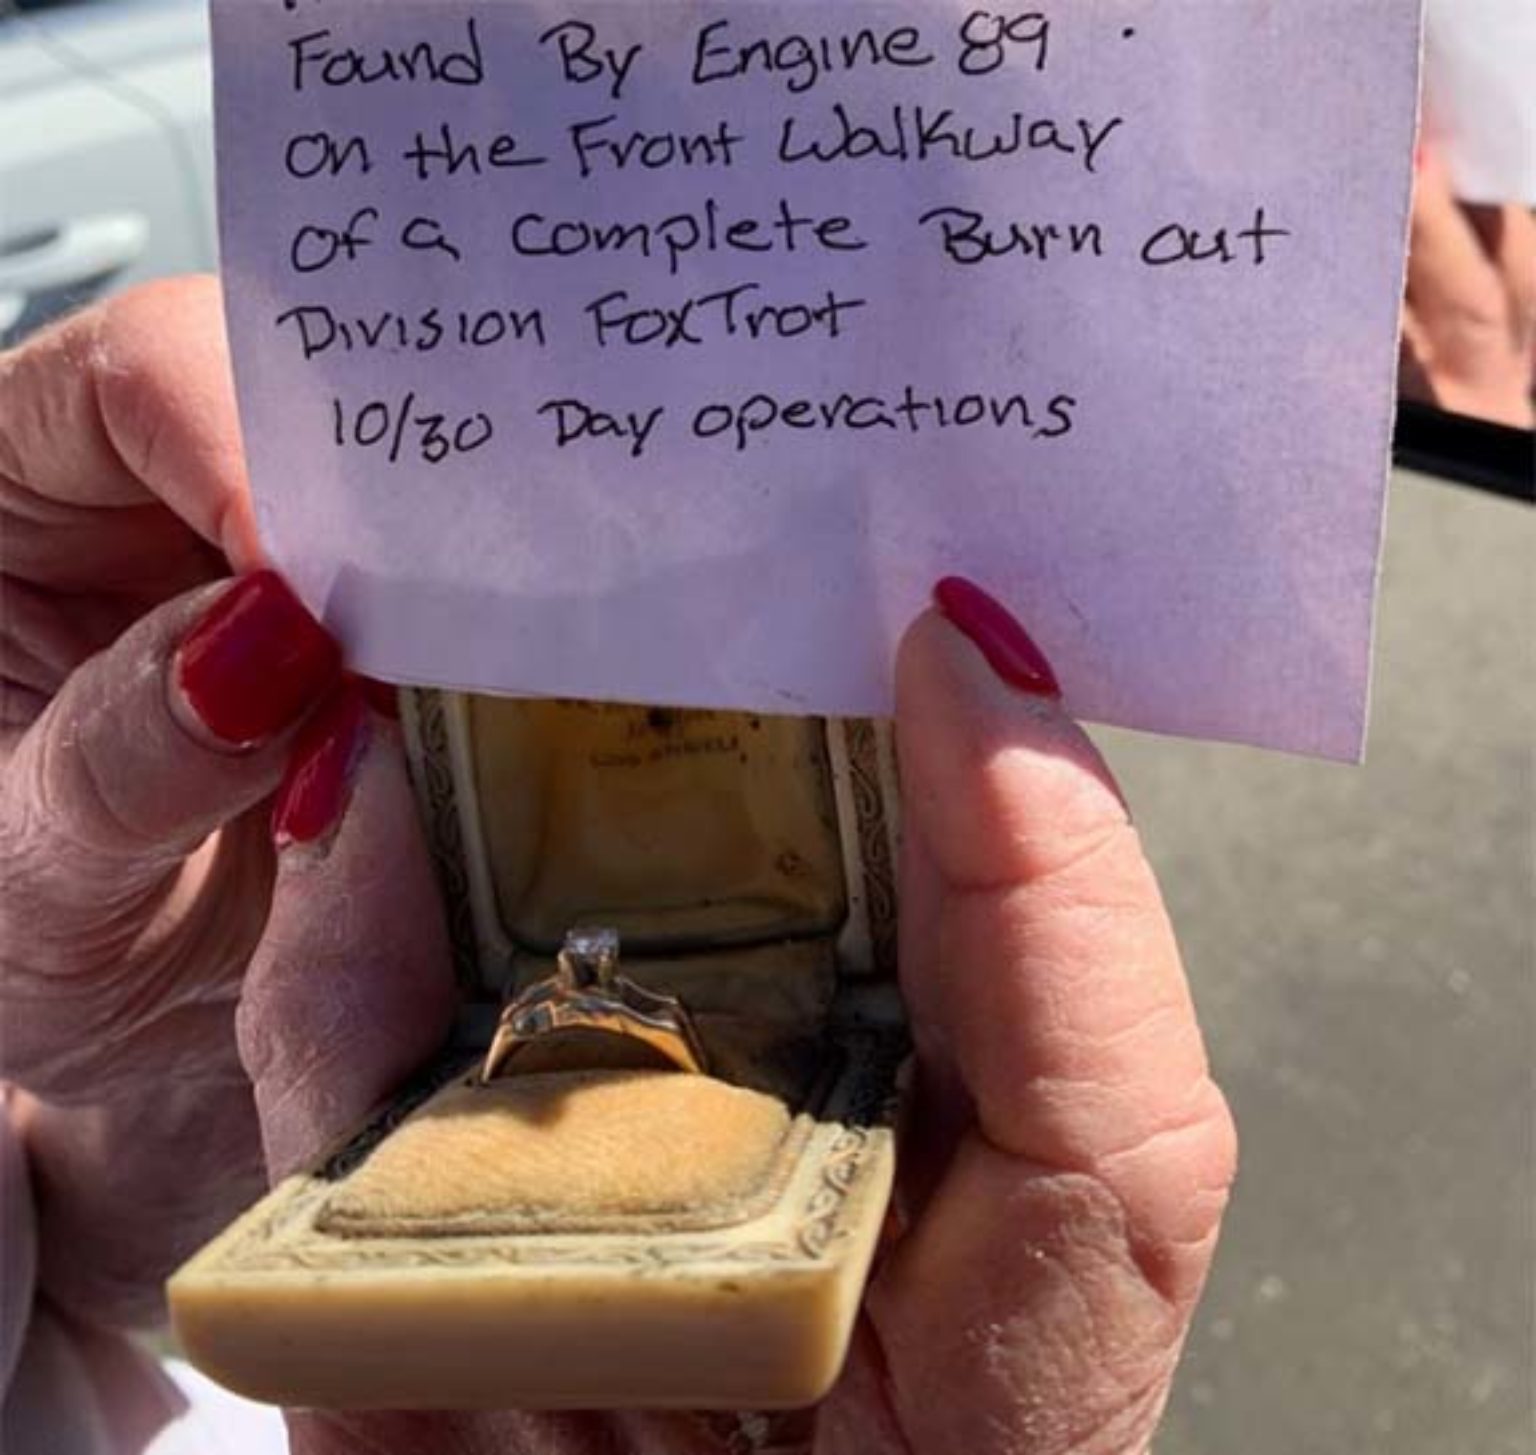 Found By Engine 89.
on the Front Walkway
of a complete Burn out
Division FoxTrot
10/30 Day operations
LOS ANGELES